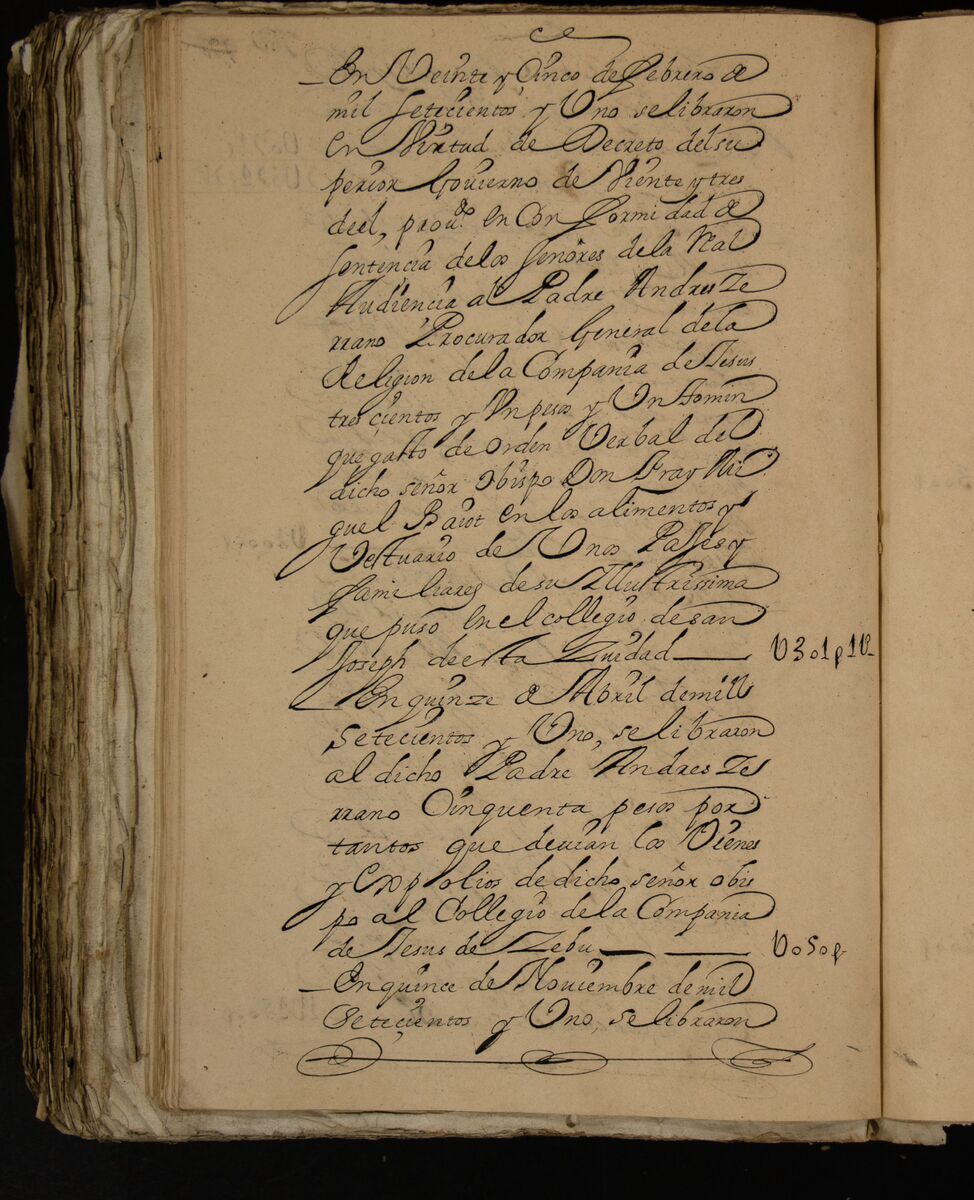 En Veinte y Cinco de Febrero de
mil setecientos y Uno se libraron
en Virtud de Decreto del su
perior Govierno de Viente y tres
de el, prov.do en Conformidad de
sentencia de los señores de la Real
Audiencia al Padre Andres Ze
rrano Procurador General de la
Religion de la Compania de Jesus
trescientos y Un pesos y Un tomin
que gasto de orden Verbal del
dicho señor obispo Don Fray Mi
guel Baiot en los alimentos y
Vestuario de Unos Pajes y
familiares de su Illustrissima
que puso en el collegio de san
Joseph de esta Ziudad U301p1
En quinze de Abril de mill
setecientos y Uno, se libraron
al dicho Padre Andres Ze
rrano Cinquenta pesos por
tantos que devian los Vienes
y Expolios de dicho señor obis
po al Collegio de la Compania
de Jesus de Zebu U050p
En quince de Noviembre de mil
setecientos y Uno, se libraron